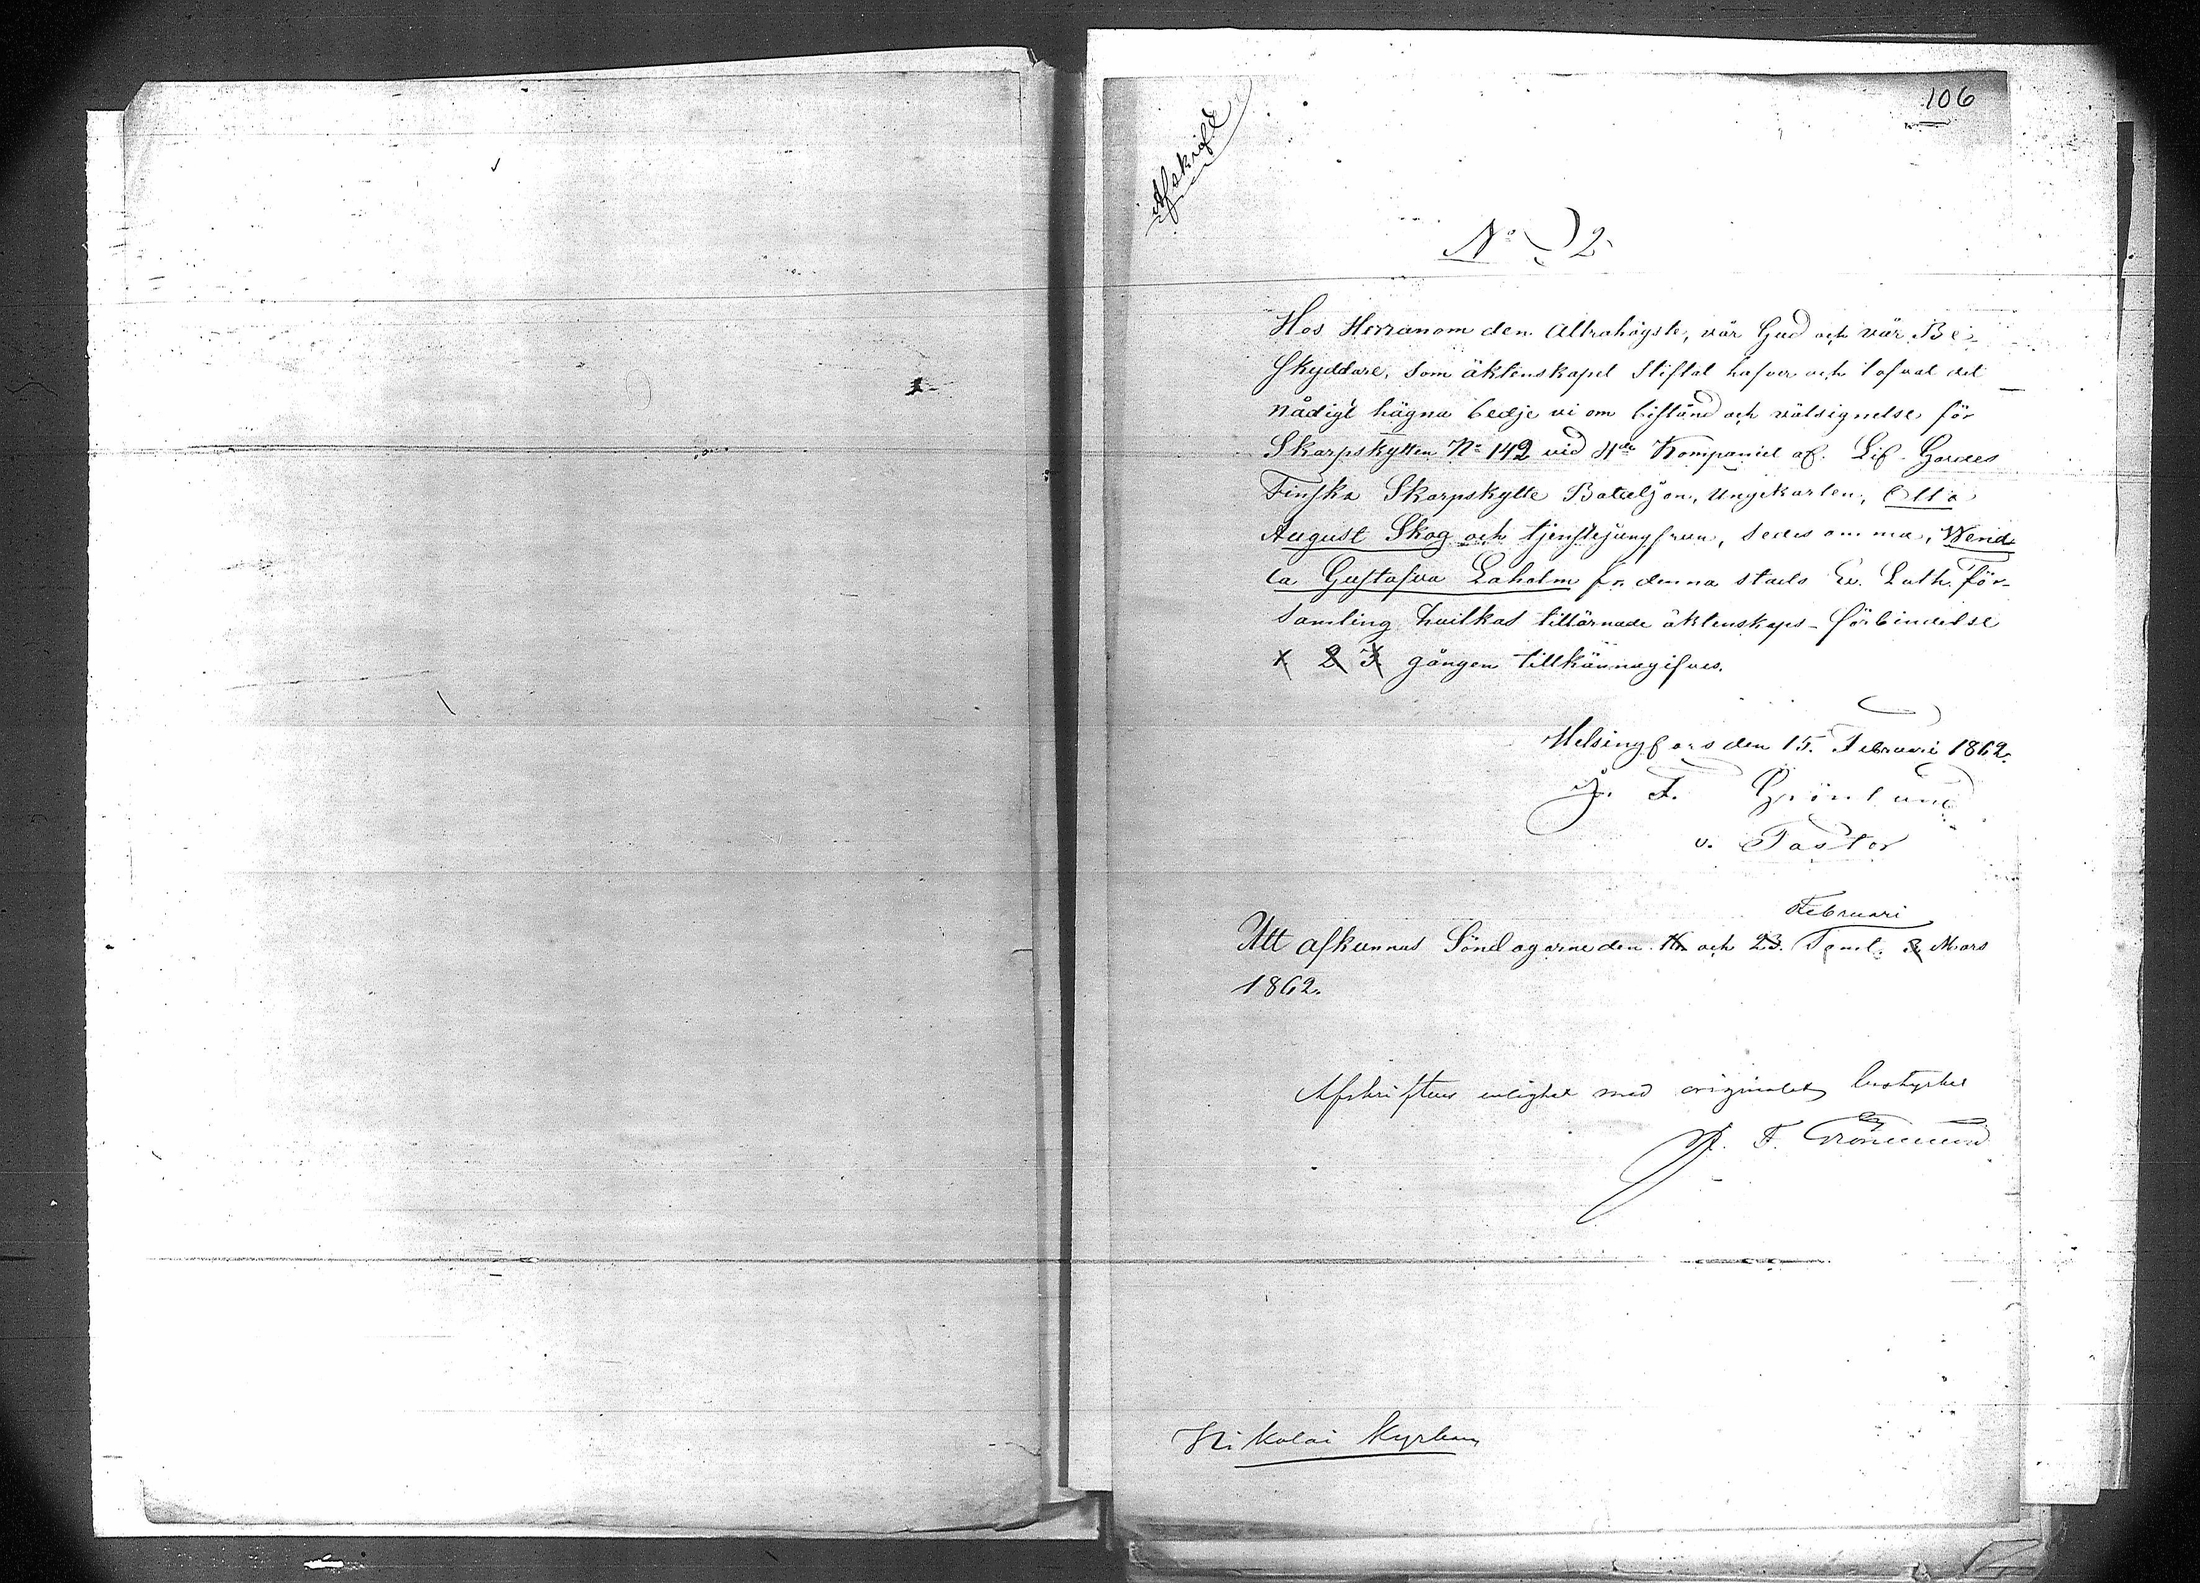 106
Afskrift
No 2
Hos Herranom den Allrahögste, vår Gud och vår Be-
skyddare, som äktenskapet stiftat hafver och lofvat det
nådigt hägna bedje vi om bistånd och välsignelse för
Skarpskytten No 142 vid 4de Kompaniet af Lif-Gardes
Finska Skarpskytte Bataljon, Ungekarlen, Otto
August Skog och tjenstejungfrun, sedesamma, Wend
la Gustafva Laholm fr. denna stads Ev. Luth. för-
samling hvilkas tillärnade äktenskaps-förbindelse
1 2 3 gången tillkännagifves.
Helsingfors den 15. Februari 1862.
F. Grönlund
v. Pastor
Februari
Att afkunnas Söndagarne den 16 och 23. samt 2 Mars
1862.
Afskriftens enlighet med originalet, bestyrker
F. Grönlund
Nikolai Kyrkan